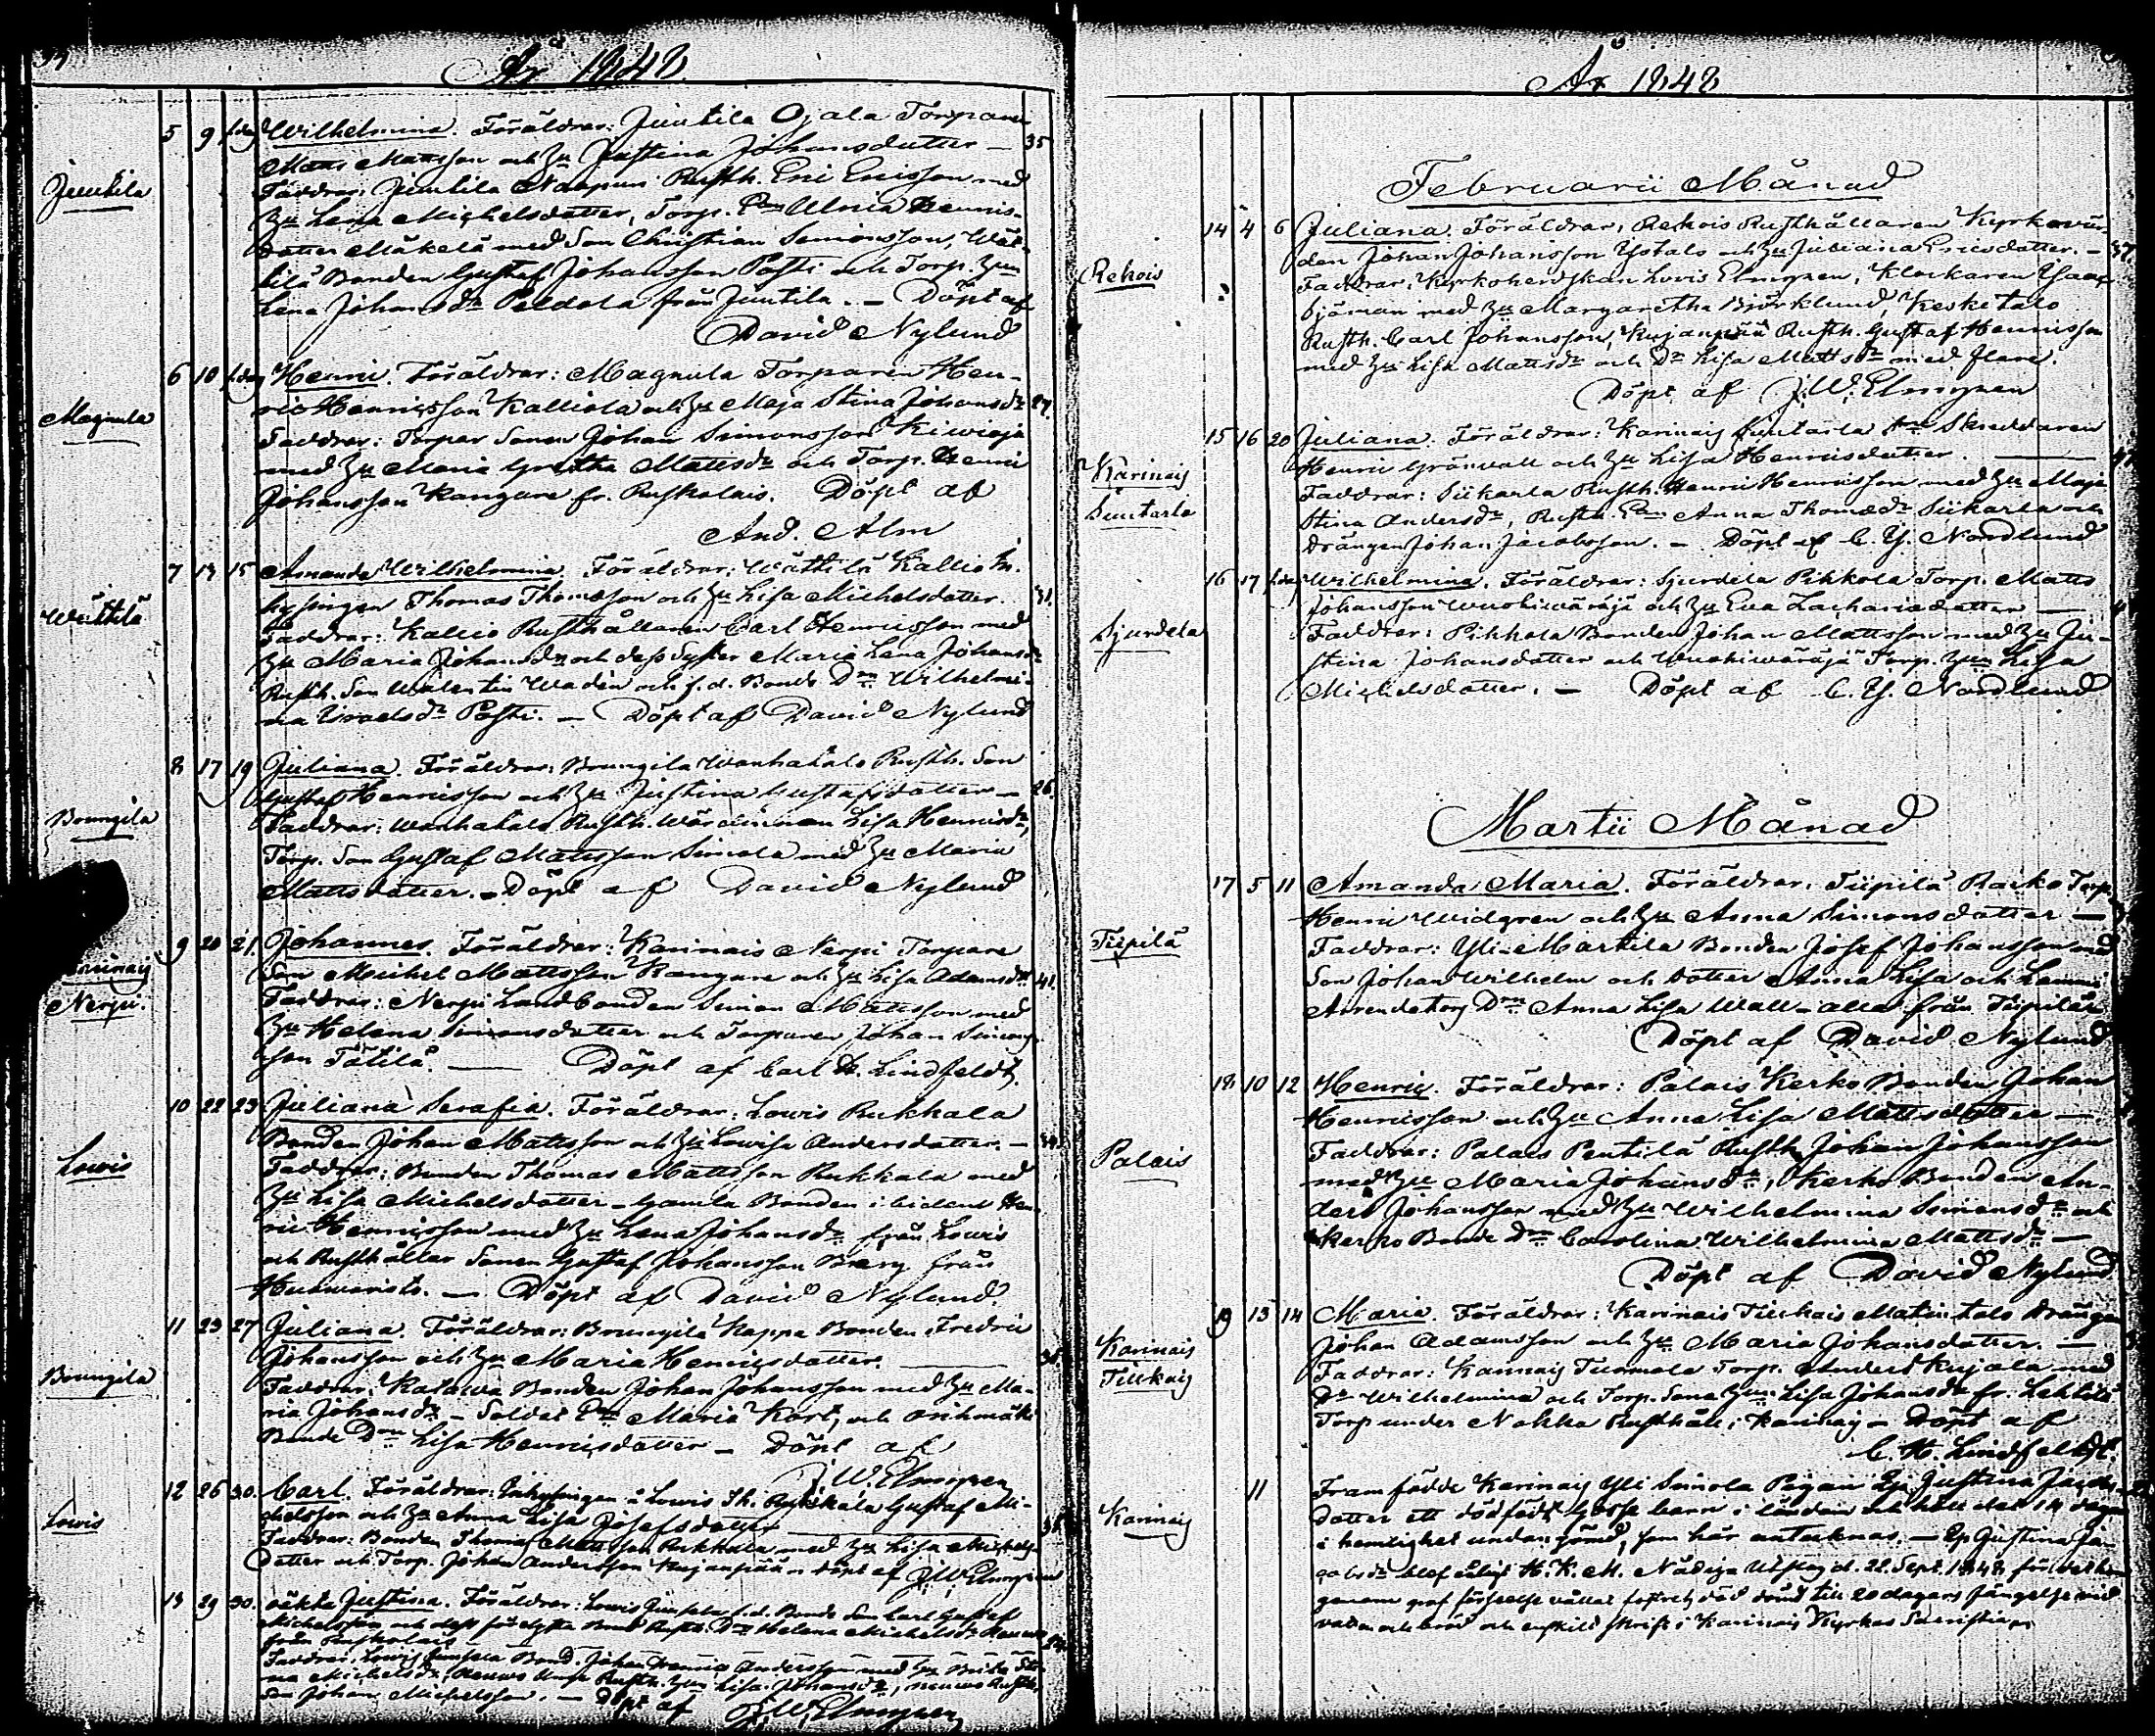 År 1848
Juutila
5 9 f.dag Wilhelmina. Föräldrar: Juutila Ojala Torparen
Matts Mattsson och Hu Justina Johansdotter — 35
Faddrar: Juutila Naapuri Rusth. Eric Ericsson med
Hu Lena Michelsdotter, Torp. Ulrica Henrics-
dotter Mäkelä med Son Christian Simonsson, Wät-
tilä Bonden Gustaf Johansson Påsti och Torp. Hun
Lena Johansdr Peldola från Juutila. — Döpt af
David Nylund
Magnula
6 10 f.dag Henric. Föräldrar: Magnula Torparen Hen-
ric Henricsson Kalliola och Hu Maja Stina Johansdr 27.
Faddrar: Torpar Sonen Johan Simonsson Kiwioja
med Hu Maria Gretha Mattsdr och Torp. Henric
Johansson Kangare fr. Ruskolais. Döpt af
And. Alm
Wättilä
7 13 15 Amanda Wilhelmina. Föräldrar: Wättilä Kallio In-
hysingen Thomas Thomasson och Hu Lisa Michelsdotter. 31.
Faddrar: Kallio Rusthållaren Carl Henricsson med
Hu Maria Johansdr och dess Syster Maria Lena Johansdr
Rusth. Son Walentin Wadén och f.d. Bonde Dr Wilhelmi-
na Israelsdr Påsti. — Döpt af David Nylund
Brungila
8 17 19 Juliana. Föräldrar: Brungila Wanhatalo Rusth. Son
Gustaf Henricsson och Hu Justina Gustafsdotter — 26.
Faddrar: Wanhatalo Rusth. Wärdinnan Lisa Henricsdr,
Torp. Son Gustaf Mattsson Simola med Hu Maria
Mattsdotter. — Döpt af David Nylund
Karinais
Nerpi.
9 20 21. Johannes. Föräldrar: Karinais Nerpi Torpare
Son Michel Mattsson Kangare och Hu Lisa Adamsdr 41.
Faddrar: Nerpi Landbonden Simon Mattsson med
Hu Helena Simonsdotter och Torparen Johan Simons-
son Tätilä. — Döpt af Carl H. Lindfeldt.
Lowis
10 22 23. Juliana Serafia. Föräldrar: Lowis Rukkala
Bonden Johan Mattsson och Hu Lowisa Andersdotter. —
Faddrar: Bonden Thomas Mattsson Rukkala med
Hu Lisa Michelsdotter — Gamla Bonden i lidens Hen-
ric Henricsson med Hu Lena Johansdr från Lowis
och Rusthållar Sonen Gustaf Johansson Brery från
— Döpt af David Nylund.
Brungila
11 23 27 Juliana. Föräldrar: Brungila Kappa Bonden Fredric
Johansson och Hu Maria Henricsdotter. —
Faddrar: Katawa Bonden Johan Johansson med Hu Ma-
ria Johansdr — Soldat Maria Kort, och
Bonde Dr Lisa Henricsdotter — Döpt af
J.W. Elmgren
Lowis
12 26 30. Carl. Föräldrar: Inhysingen i Lowis Rukkala Gustaf Mi-
chelsson och Hu Anna Lisa Josefsdotter —
Faddrar: Bonden Thomas Mattsson Rukkala med Hu Lisa Michels-
dotter och Torp. Johan Andersson Kujanpää — Döpt af J.W. Elmgren
13 29 30. oäkta Justina. Föräldrar: Lowis f.d. Bonde Son Carl Gustaf
Michelsson och dess Rusth. Dr Helena Michelsdr
från Ruskolais —
Faddrar: Lowis Bond. Johan Andersson med Hu Brita Sti-
na Michelsdr, Rusth. Hun Lisa Johansdr, Rusth.
Son Johan Michelsson. — Döpt af J.W. Elmgren
År 1848
Februarii Månad
Rekois
14 4 6 Juliana. Föräldrar: Rekois Rusthållaren Kyrkovär-
den Johan Johansson Ystalo och Hu Juliana Ericsdotter. — 37.
Faddrar: Kyrkoherdskan Lovis Elmgren, Klockaren Isaac
Sjöman med Hu Margaretha Björklund, Kesketalo
Rusth. Carl Johansson, Kujanpää Rusth. Gustaf Henricsson
med Hu Lisa Mattsdr och Dr Lisa Mattsdr med flere.
Döpt af J.W. Elmgren
Karinais
Suutarla
15 16 20 Juliana. Föräldrar: Karinais Suutarla Skräddaren
Henric Grönvall och Hu Lisa Henricsdotter. —
Faddrar: Siikarla Rusth. Henric Henricsson med Hu Maja
Stina Andersdr, Rusth. Anna Thomasdr Siikarla och
Drängen Johan Jacobsson. — Döpt af C. Y. Nordlund
Sjurdela
16 17 f.dag Wilhelmina. Föräldrar: Sjurdela Pihkola Torp. Matts
Johansson Wuohiwäräjä och Hu Eva Zachariædotter —
Faddrar: Pihkola Bonden Johan Mattsson med Hu Ju-
stina Johansdotter och Wuohiwäräjä Torp. Hun Lisa
Michelsdotter. — Döpt af C. Y. Nordlund
Martii Månad
Tiipilä
17 5 11 Amanda Maria. Föräldrar: Tiipilä Rasko Torp.
Henric Widgren och Hu Anna Simonsdotter —
Faddrar: Yli-Markila Bonden Josef Johansson med
Son Johan Wilhelm och Dotter Anna Lisa och
Arrendators Dr Anna Lisa Wall — alla från Tiipilä
Döpt af David Nylund
Palais
18 10 12 Henric. Föräldrar: Palais Kerko Bonden Johan
Henricsson och Hu Anna Lisa Mattsdotter —
Faddrar: Palais Pentilä Rusth. Johan Johansson
med Hu Maria Johansdr, Kerko Bonden An-
ders Johansson med Hu Wilhelmina Simonsdr och
Kerko Bonde Dr Carolina Wilhelmina Mattsdr —
Döpt af David Nylund
Karinais
Tiukais
19 13 14 Maria. Föräldrar: Karinais Tiukais Matin talo Drängen
Johan Adamsson och Hu Maria Johansdotter. —
Faddrar: Karinais Tuomola Torp. Anders Kujala med
Dr Wilhelmina och Torp. Sons Hun Lisa Johansdr fr. Lehtilä
Torp under Nokka Rusthåll i Karinais — Döpt af
C. H. Lindfeldt.
Karinais
11 Framfödde Karinais Yli Simola Pigan Ep Justina Jacobs-
dotter ett dödfödt Gosse barn i löndom och höll det 14 dagar
i hemlighet undangömd, som här antecknas. — Ep Justina Ja-
cobsdr blef enligt H. K. M. Nådiga Utslag d. 22 Sept. 1848 för
genom grof förseelse vållat fostrets död dömd till 20 dagars fängelse vid
vatten och bröd och enskild skrift i Karinais Kyrkas Sacristia